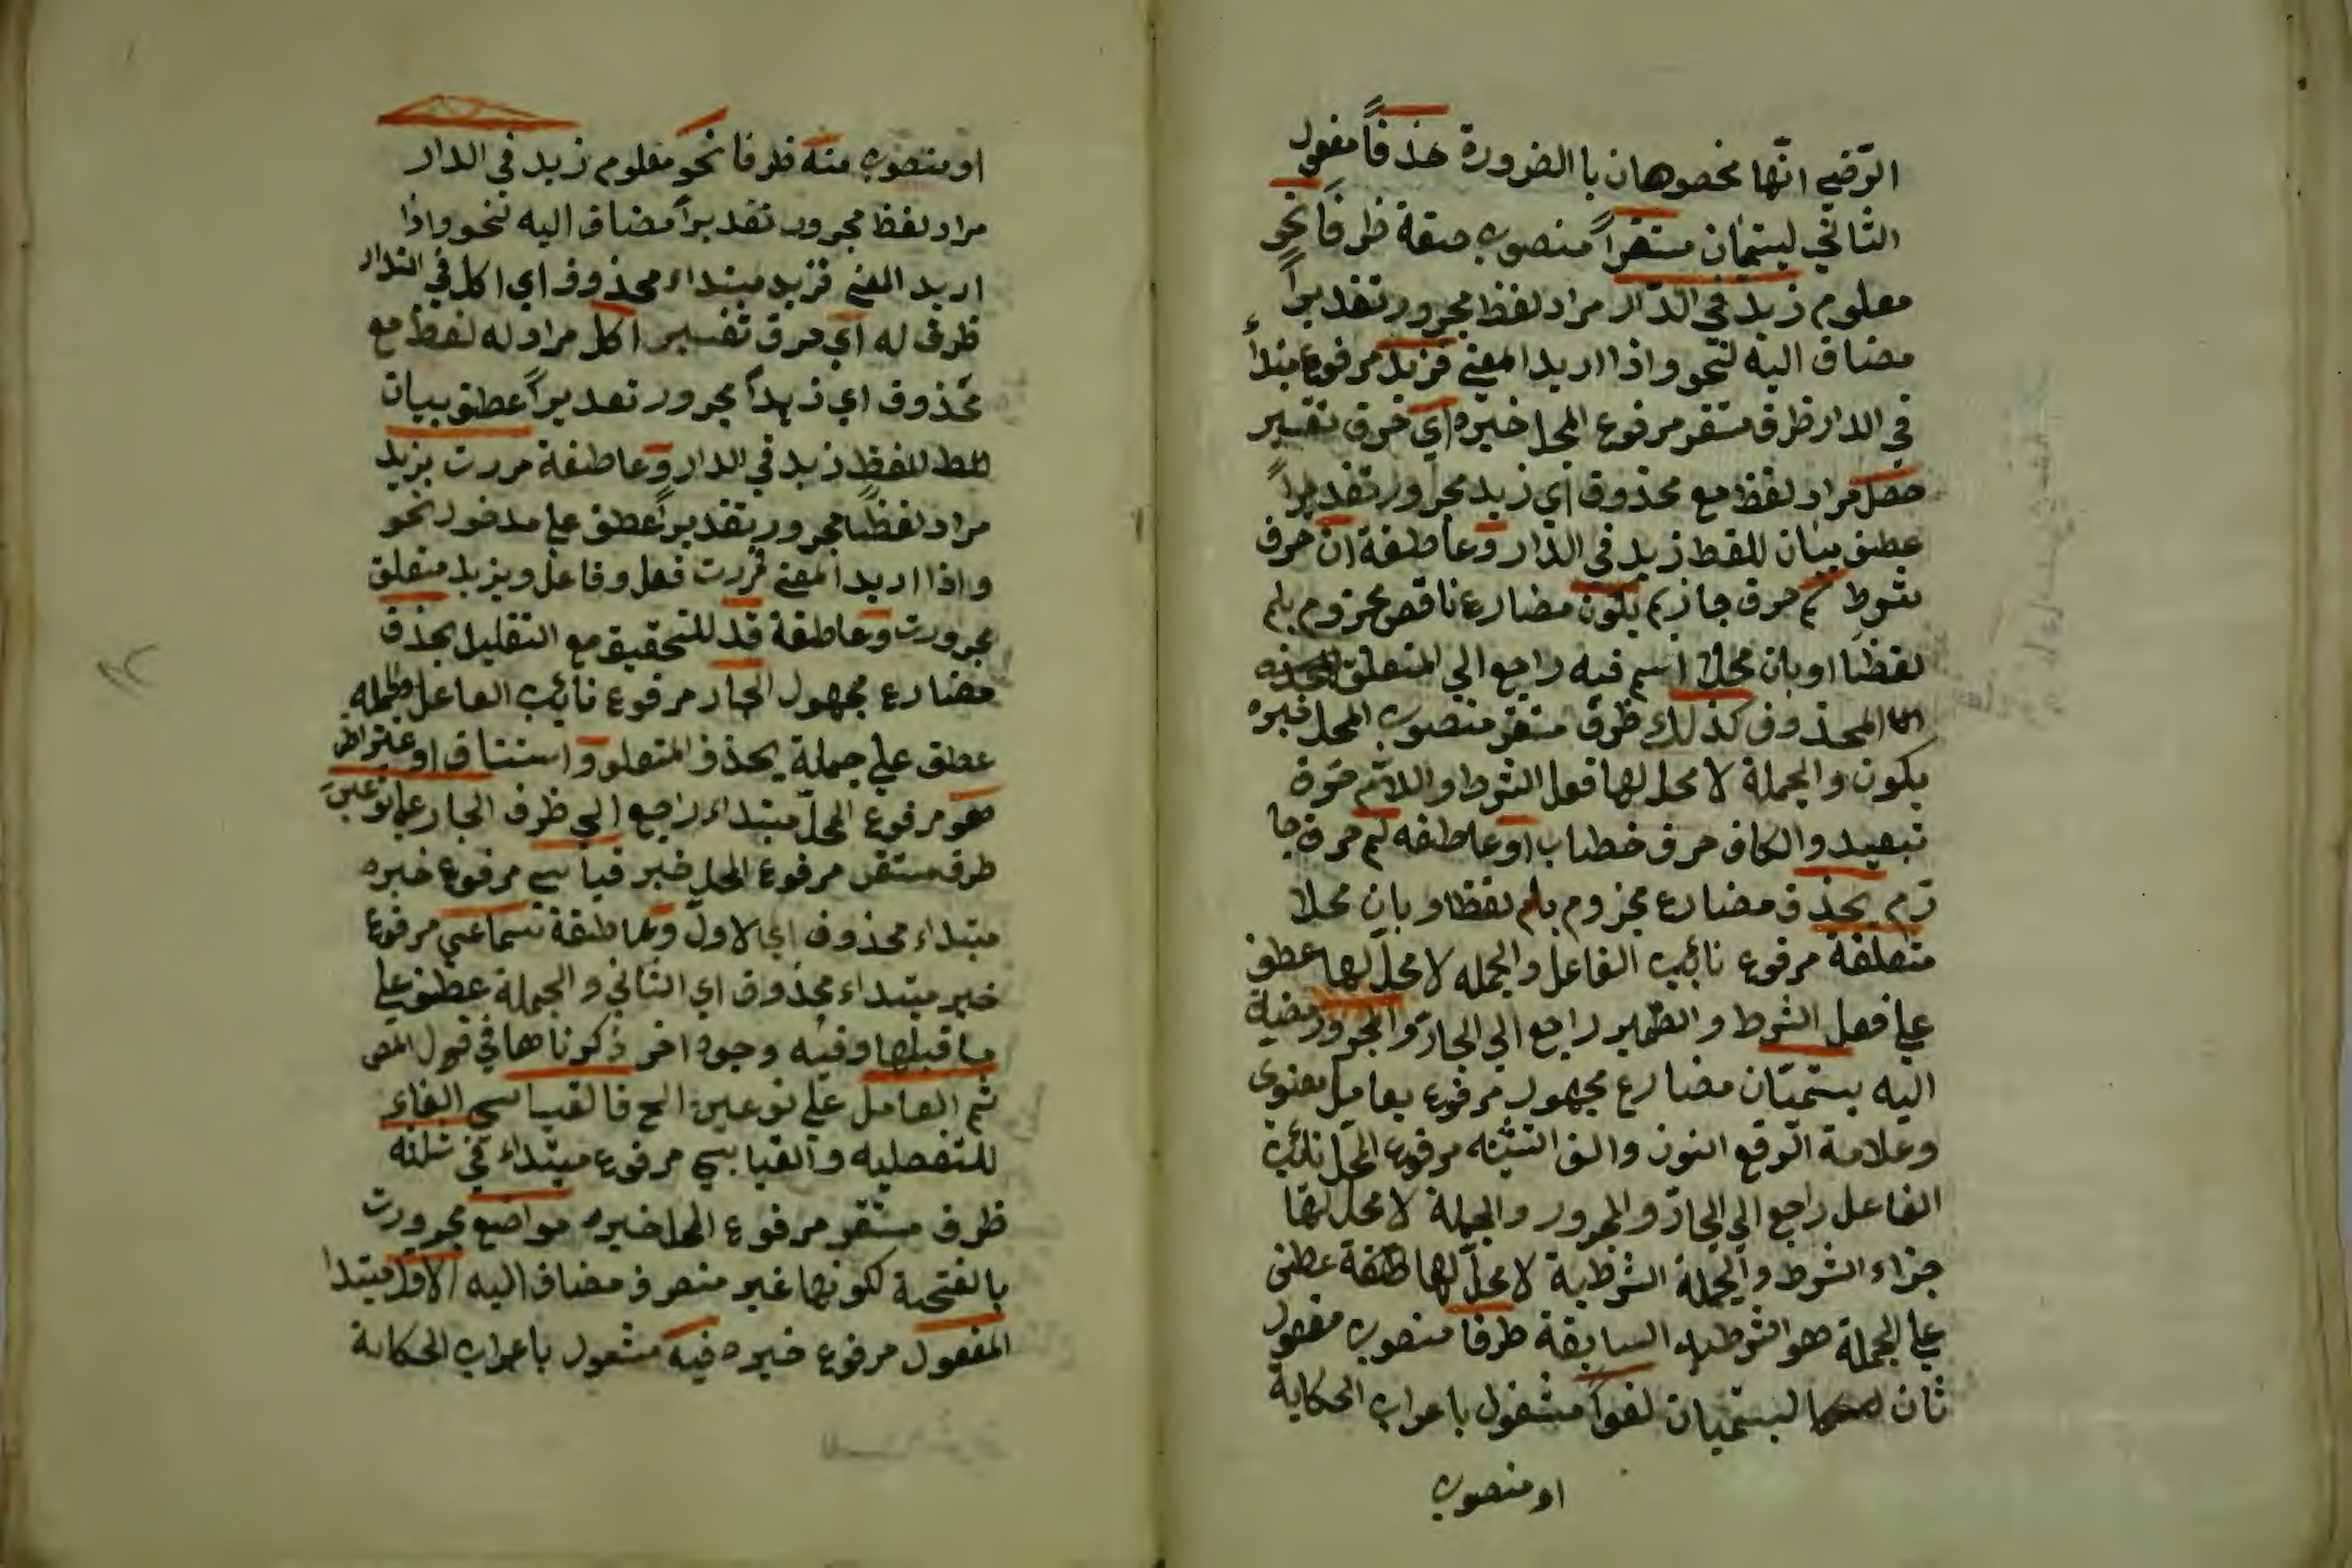 الرّضي انّها مخصوهان با الضرورة حذفاً مفعول
الثاني ليسمّان مستقراً منصوب صفة ظرفاً نحو
معلوم زيد في الدّار مراد لفظ مجرور تقديراً
مضاف اليه لنحو واذا اريد المعنى فزيد مرفوع مبتدأ
في الدار ظرف مستقر مرفوع المحل خبره اي حرف تفسير
حصل مراد لفظ مع محذوف اي زيد مجرور تقديراً
عطف بيان للفظ زيد في الدار وعاطفة ان حرف
شرط لم حرف جازم يكون مضارع ناقص مجزوم بلم
لفظا او بان محلا اسم فيه راجع الي المتعلق
المحذوف كذلك ظرف مستقر منصوب المحل خبره
يكون والجملة لا محل لها فعل الشرط واللام حرف
تبعيد والكاف حرف خطاب او عاطفه لم حرف جا
زم يحذف مضارع مجزوم بلم لفظا وبان محلا
متعلقة مرفوع نائب الفاعل والجمله لا محل لها عطف
علي فعل الشرط والضمير راجع الي الجار والمجرور مضاف
اليه يسمّيان مضارع مجهول مرفوع بعامل معنوى
وعلامة الرفع النون والف التثنيه مرفوع المحل نائب
الفاعل راجع الي الجار والمجرور والجملة لا محل لها
جزاء الشرط والجملة الشرطية لا محل لها عطف
علي الجملة هو الشرطيه السابقة ظرفا منصوب مفعول
ثان ليسمّيان لغواً مشغول باعراب الحكاية
او منصوب
او منصوب منه ظرفا نحو معلوم زيد في الدار
مراد لفظ مجرور تقديراً مضاف اليه لنحو واذا
اريد المعنى فزيد مبتداء محذوف اي اكل في الدار
ظرف له اي حرف تفسير اكل مراد له لفظ مع
محذوف اي زيداً مجرور تقديراً عطف بيان
للفظ زيد في الدار وعاطفة مررت بزيد
مراد لفظاً مجرور تقديراً عطف علي مدخول نحو
واذا اريد المعنى فمررت فعل وفاعل وبزيد متعلق
مجرورت وعاطفة قد للتحقيق مع التقليل يحذف
مضارع مجهول الجار مرفوع نائب الفاعل والجمله
عطف علي جملة يحذف المتعلق واستناف او عتراض
هو مرفوع المحل مبتداء راجع الي ظرف الجار علي نوعين
ظرف مستقر مرفوع المحل خبر قياسي مرفوع خبره
مبتداء محذوف اي الاول وعاطفة سماعي مرفوع
خبر مبتداء محذوف اي الثاني والجملة عطف علي
ما قبلها وفيه وجوه اخر ذكرناها في قول المص
ثم العامل علي نوعين الخ فالقياسي الفاء
للتفصليه والقياسي مرفوع مبتداء في ثلثه
ظرف مستقر مرفوع المحل خبره مواضع مجرورت
بالفتحة لكونها غير منصرف مضاف اليه الاول مبتدا
المفعول مرفوع خبره فيه مشغول باعراب الحكاية